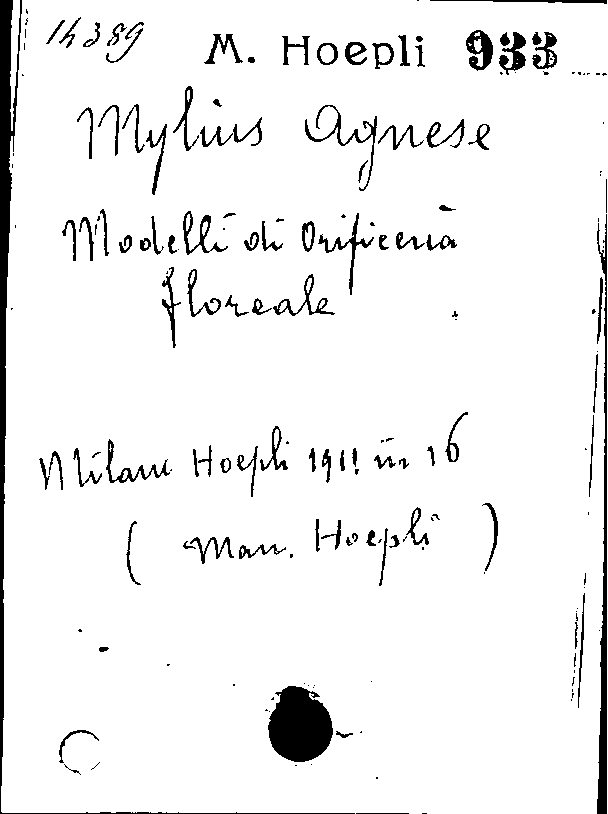 14389 M. Hoepli 933
Mylius Agnese
Modelli di Orificeria
floreale
Milano Hoepli 1911 in 16
( Man. Hoepli )